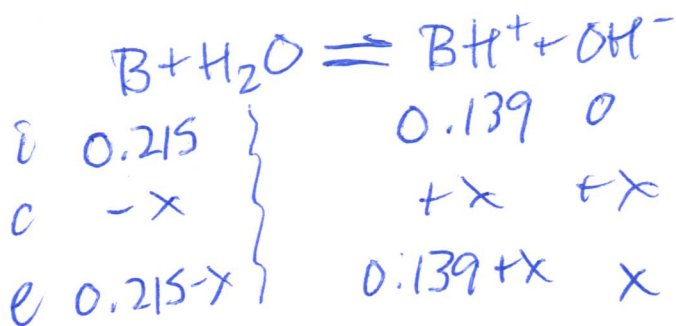 B + H₂O ⇌ BH⁺ + OH⁻
i 0.215 0.139 0
c -x +x +x
e 0.215-x 0.139+x x